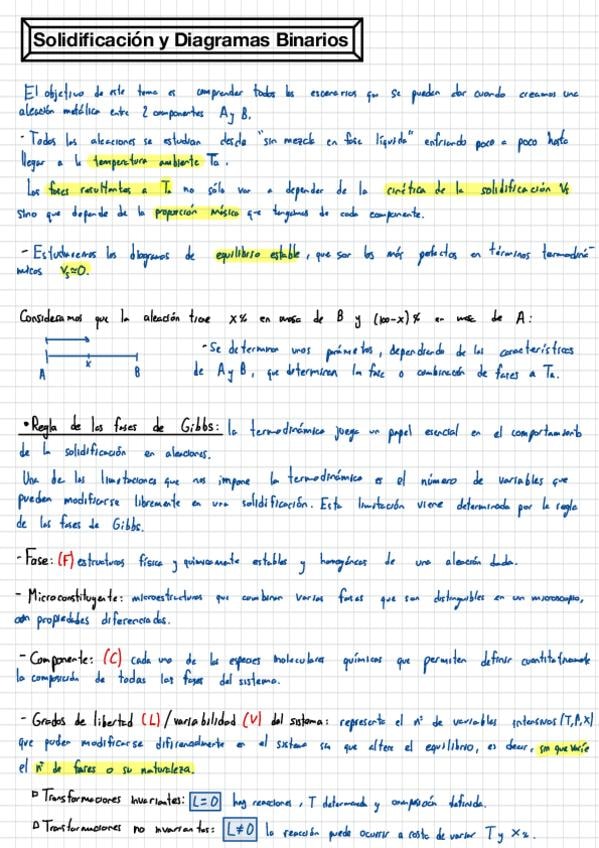 Solidificación y Diagramas Binarios
El objetivo de este tema es comprender todos los escenarios que se pueden dar cuando creamos una
aleación metálica entre 2 componentes A y B.
- Todas las aleaciones se estudian desde "sin mezcla en fase líquida" enfriando poco a poco hasta
llegar a la temperatura ambiente Ta.
Las fases resultantes a Ta no sólo van a depender de la cinética de la solidificación Vs
sino que depende de la proporción másica que tengamos de cada componente.
- Estudiaremos los diagramas de equilibrio estable, que son los más perfectos en términos termodiná-
micos Vs≈0.
Consideramos que la aleación tiene x% en masa de B y (100-x)% en masa de A:
A x B
- Se determinan unos parámetros, dependiendo de las características
de A y B, que determinan la fase o combinación de fases a Ta.
• Regla de las fases de Gibbs: la termodinámica juega un papel esencial en el comportamiento
de la solidificación en aleaciones.
Una de las limitaciones que nos impone la termodinámica es el número de variables que
pueden modificarse libremente en una solidificación. Esta limitación viene determinada por la regla
de las fases de Gibbs.
- Fase: (F) estructuras física y químicamente estables y homogéneas de una aleación dada.
- Microconstituyente: microestructuras que combinan varias fases que son distinguibles en un microscopio,
con propiedades diferenciadas.
- Componente: (C) cada una de las especies moleculares químicas que permiten definir cuantitativamente
la composición de todas las fases del sistema.
- Grados de libertad (L)/variabilidad (V) del sistema: representa el nº de variables intensivas (T,P,X)
que pueden modificarse diferencialmente en el sistema sin que altere el equilibrio, es decir, sin que varíe
el nº de fases o su naturaleza.
▷ Transformaciones invariantes: L=0 hay reacciones, T determinada y composición definida.
▷ Transformaciones no invariantes: L≠0 la reacción puede ocurrir a costa de variar T y X₂.